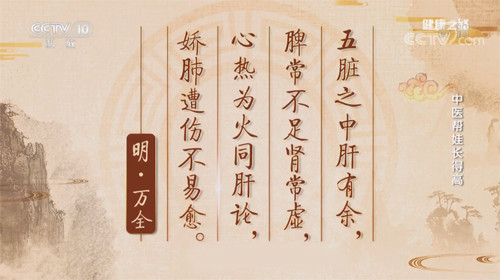 CCTV 10
健康之路
CCTV.com
五脏之中肝有余，
脾常不足肾常虚，
心热为火同肝论，
娇肺遭伤不易愈。
明·万全
中医帮娃长得高